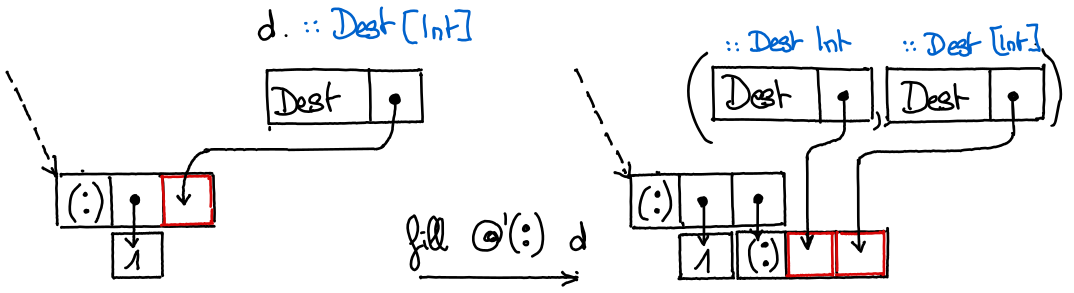 d. :: Dest [Int]
Dest
(:)
1
fill @'(:) d
( :: Dest Int :: Dest [Int] )
Dest , Dest
(:)
1 (:)